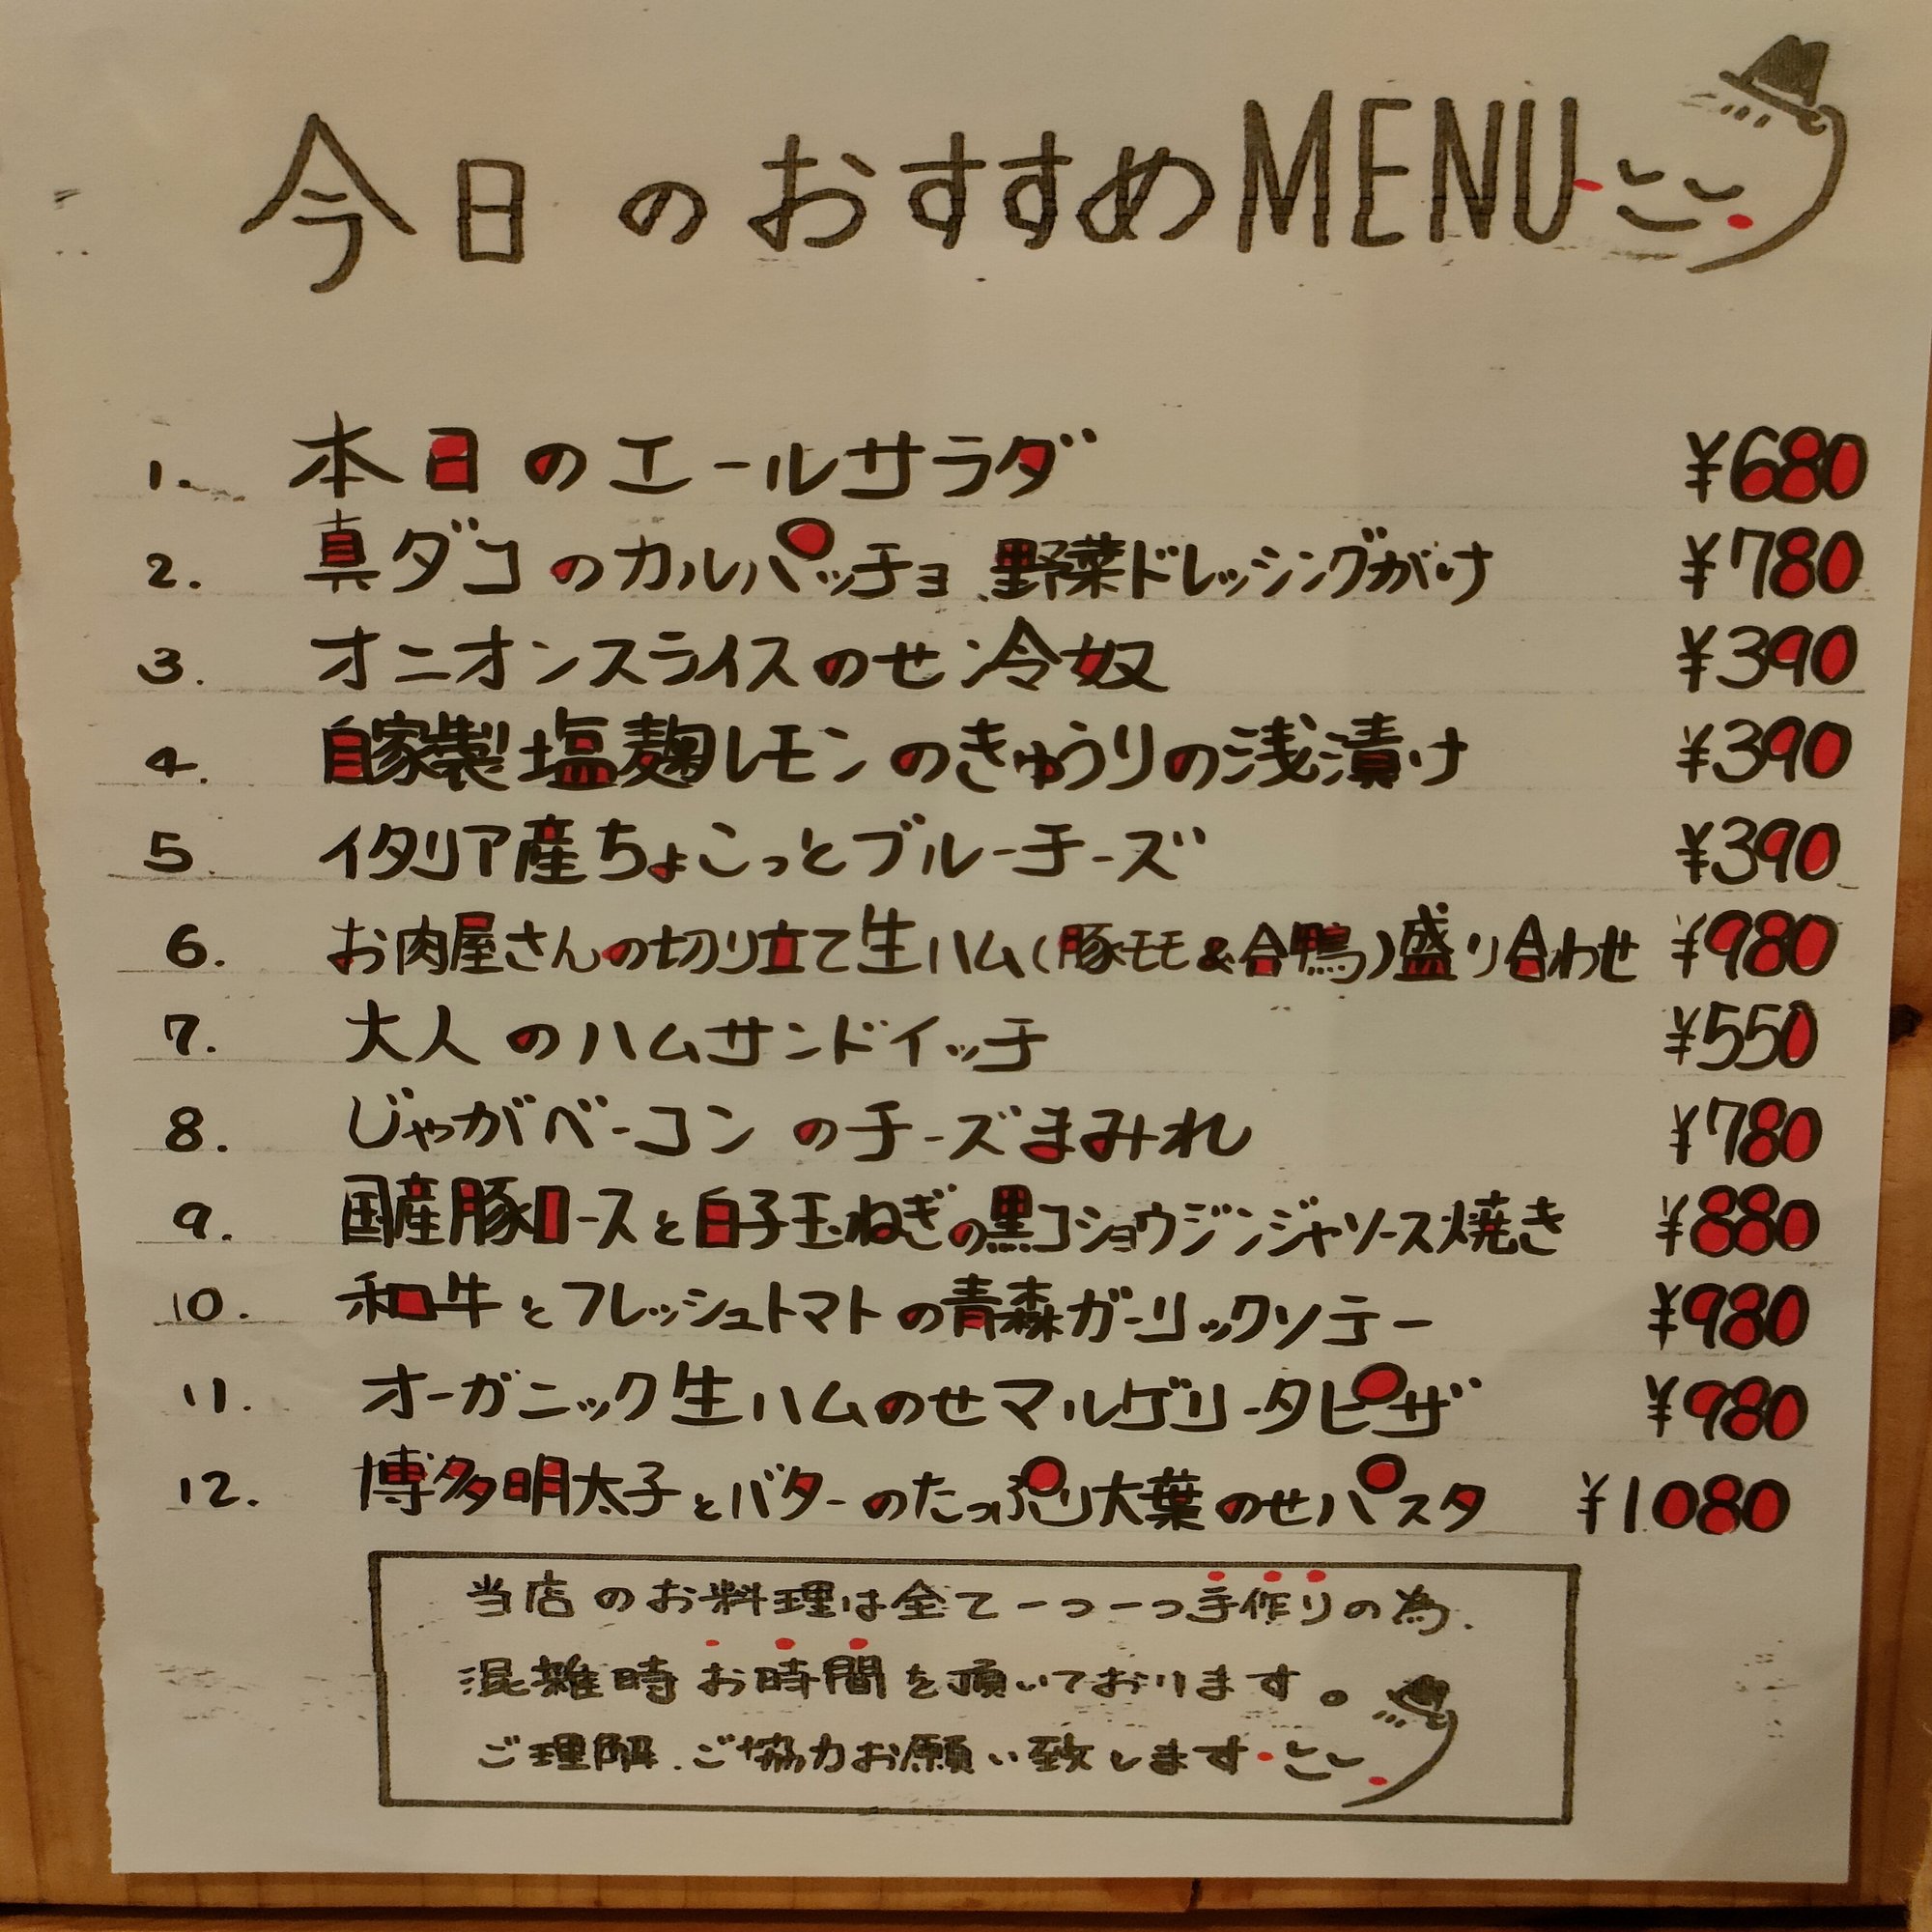 今日のおすすめMENU
1. 本日のエールサラダ ¥680
2. 真ダコのカルパッチョ、野菜ドレッシングがけ ¥780
3. オニオンスライスのせ冷奴 ¥390
4. 自家製塩麹レモンのきゅうりの浅漬け ¥390
5. イタリア産ちょこっとブルーチーズ ¥390
6. お肉屋さんの切り立て生ハム(豚モモ&合鴨)盛り合わせ ¥980
7. 大人のハムサンドイッチ ¥550
8. じゃがベーコンのチーズまみれ ¥780
9. 国産豚ロースと白子玉ねぎの黒コショウジンジャソース焼き ¥880
10. 和牛とフレッシュトマトの青森ガーリックソテー ¥980
11. オーガニック生ハムのせマルゲリータピザ ¥980
12. 博多明太子とバターのたっぷり大葉のせパスタ ¥1080
当店のお料理は全て一つ一つ手作りの為、
混雑時お時間を頂いております。
ご理解、ご協力お願い致します